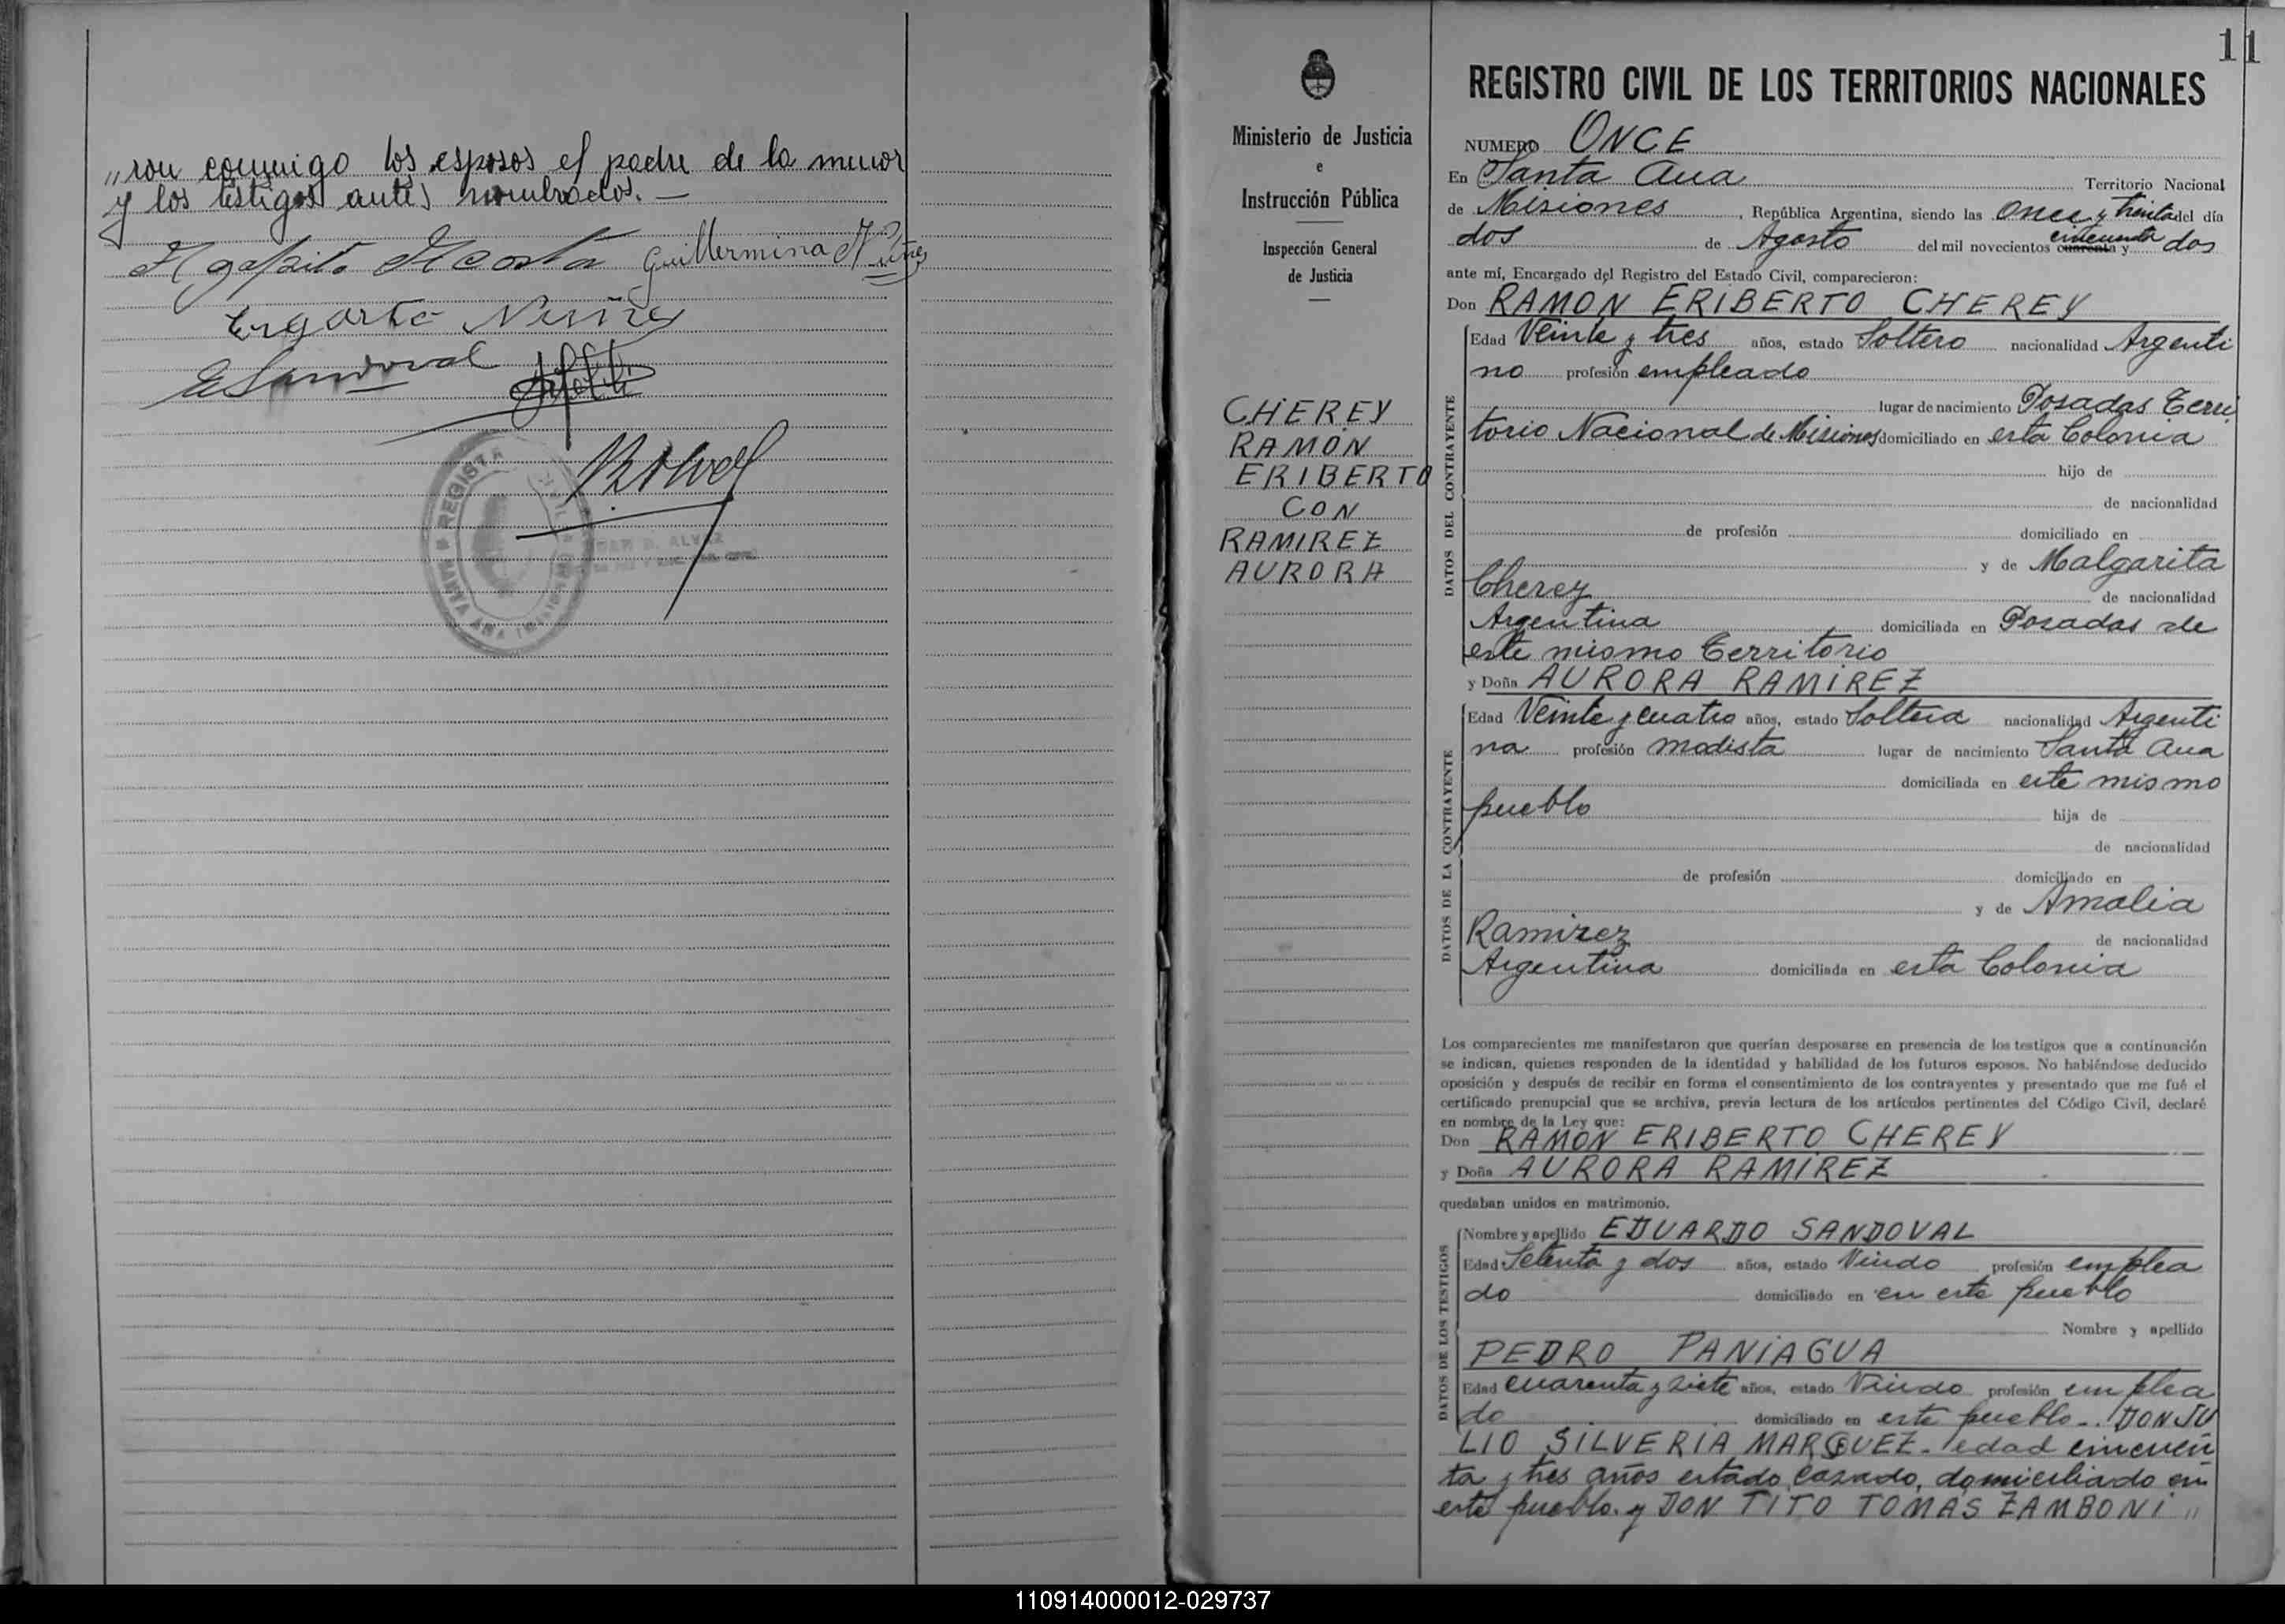 „ron conmigo los esposos el padre de la menor
y los testigos antes nombrados. —
Agapito Acosta Guillermina Nuñes
Ergasto Nuñez
E Sandoval
REGISTRO CIVIL
SANTA ANA (MISIONES)
11
Ministerio de Justicia
e
Instrucción Pública
Inspección General
de Justicia
CHEREY
RAMON
ERIBERTO
CON
RAMIREZ
AURORA
REGISTRO CIVIL DE LOS TERRITORIOS NACIONALES
NUMERO ONCE
En Santa Ana Territorio Nacional
de Misiones, República Argentina, siendo las Once y treinta del día
dos de Agosto del mil novecientos cuarenta y cincuenta dos
ante mí, Encargado del Registro del Estado Civil, comparecieron:
Don RAMON ERIBERTO CHEREY
DATOS DEL CONTRAYENTE
Edad Veinte y tres años, estado Soltero nacionalidad Argenti
no profesión empleado
lugar de nacimiento Posadas Terri
torio Nacional de Misiones domiciliado en esta Colonia
hijo de
de nacionalidad
de profesión domiciliado en
y de Malgarita
Cherey de nacionalidad
Argentina domiciliada en Posadas de
este mismo Territorio
y Doña AURORA RAMIREZ
DATOS DE LA CONTRAYENTE
Edad Veinte y cuatro años, estado Soltera nacionalidad Argenti
na profesión modista lugar de nacimiento Santa Ana
domiciliada en este mismo
pueblo hija de
de nacionalidad
de profesión domiciliado en
y de Amalia
Ramirez de nacionalidad
Argentina domiciliada en esta Colonia
Los comparecientes me manifestaron que querían desposarse en presencia de los testigos que a continuación
se indican, quienes responden de la identidad y habilidad de los futuros esposos. No habiéndose deducido
oposición y después de recibir en forma el consentimiento de los contrayentes y presentado que me fué el
certificado prenupcial que se archiva, previa lectura de los artículos pertinentes del Código Civil, declaré
en nombre de la Ley que:
Don RAMON ERIBERTO CHEREY
y Doña AURORA RAMIREZ
quedaban unidos en matrimonio.
DATOS DE LOS TESTIGOS
Nombre y apellido EDUARDO SANDOVAL
Edad Setenta y dos años, estado Viudo profesión emplea
do domiciliado en en este pueblo
Nombre y apellido
PEDRO PANIAGUA
Edad cuarenta y siete años, estado Viudo profesión emplea
do domiciliado en este pueblo.- DON JU
LIO SILVERIA MARQUEZ - edad cincuen
ta y tres años estado casado, domiciliado en
este pueblo. y DON TITO TOMAS ZAMBONI „
110914000012-029737